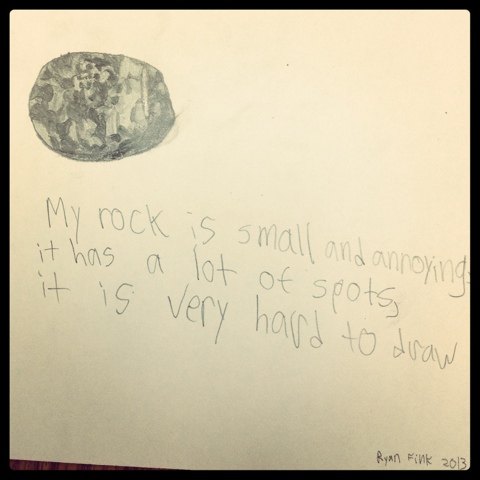 My rock is small and annoying;
it has a lot of spots,
it is very hard to draw
Ryan Fink 2013